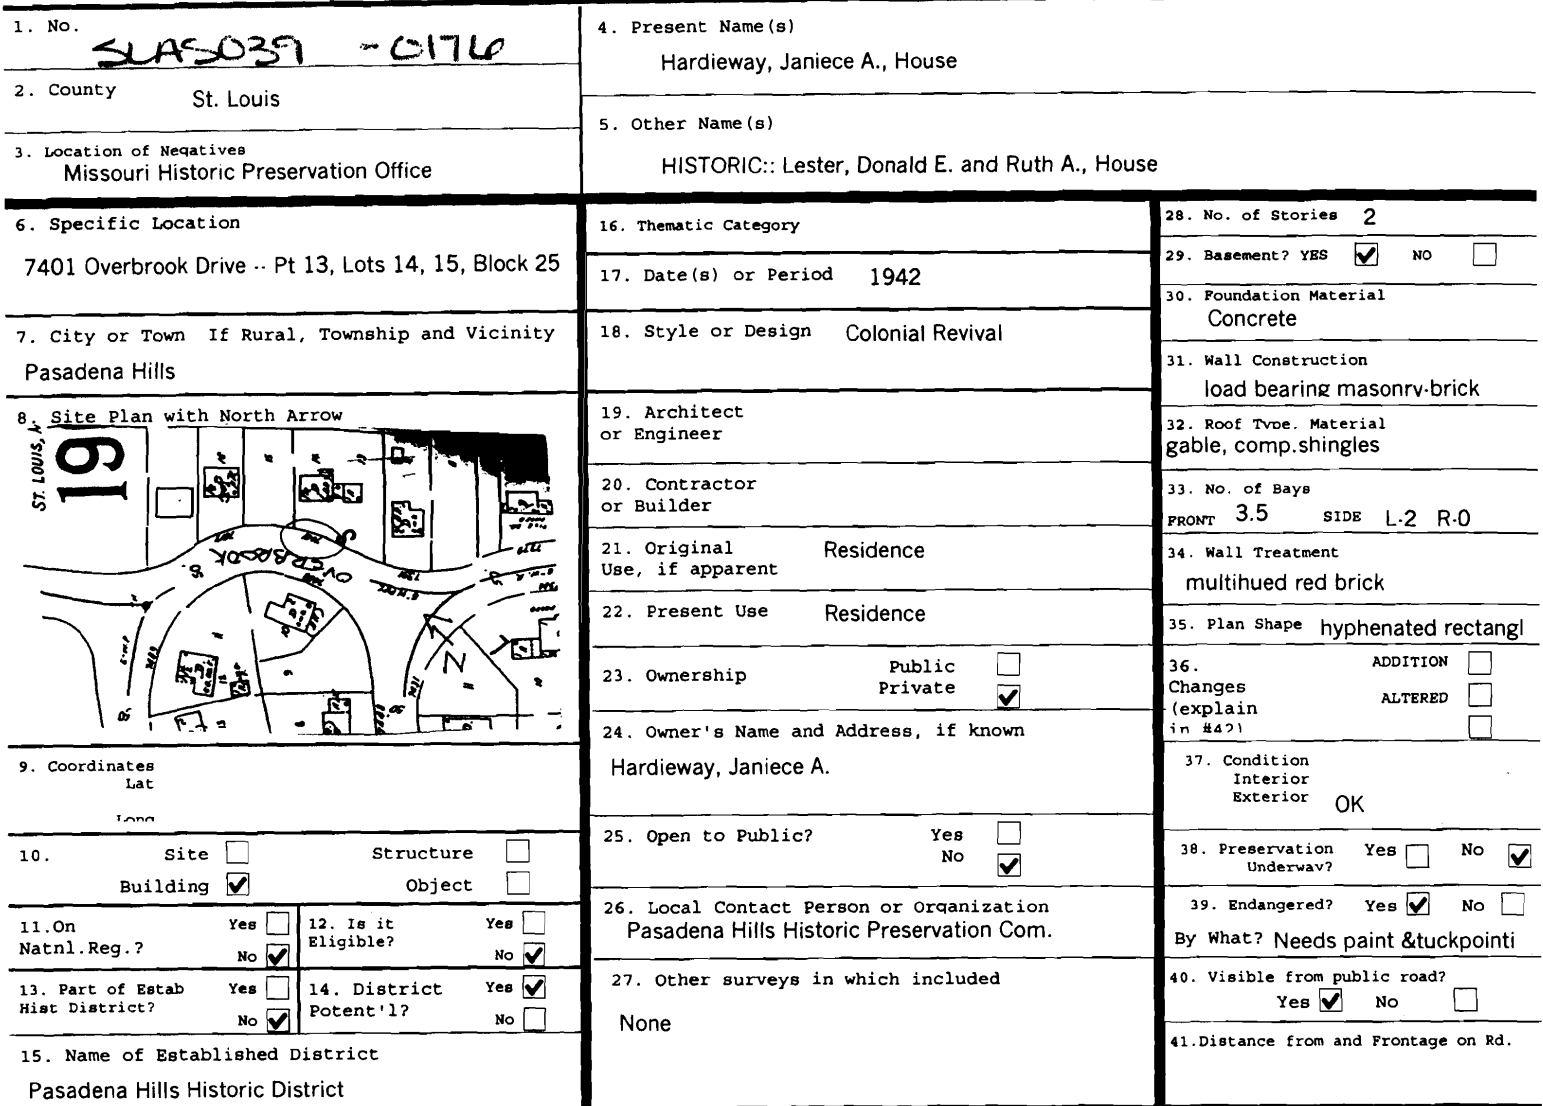 1. No.
SLAS039 -0176
2. County St. Louis
3. Location of Negatives
Missouri Historic Preservation Office
4. Present Name(s)
Hardieway, Janiece A., House
5. Other Name(s)
HISTORIC:: Lester, Donald E. and Ruth A., House
6. Specific Location
7401 Overbrook Drive -- Pt 13, Lots 14, 15, Block 25
7. City or Town If Rural, Township and Vicinity
Pasadena Hills
8. Site Plan with North Arrow
ST. LOUIS,
19
OVERBROOK
N
9. Coordinates
Lat
Long
10. Site Structure
Building ✔ Object
11.On Natnl.Reg.? Yes No ✔
12. Is it Eligible? Yes No ✔
13. Part of Estab Hist District? Yes No ✔
14. District Potent'l? Yes ✔ No
15. Name of Established District
Pasadena Hills Historic District
16. Thematic Category
17. Date(s) or Period 1942
18. Style or Design Colonial Revival
19. Architect
or Engineer
20. Contractor
or Builder
21. Original Residence
Use, if apparent
22. Present Use Residence
23. Ownership Public
Private ✔
24. Owner's Name and Address, if known
Hardieway, Janiece A.
25. Open to Public? Yes
No ✔
26. Local Contact Person or Organization
Pasadena Hills Historic Preservation Com.
27. Other surveys in which included
None
28. No. of Stories 2
29. Basement? YES ✔ NO
30. Foundation Material
Concrete
31. Wall Construction
load bearing masonry-brick
32. Roof Type. Material
gable, comp.shingles
33. No. of Bays
FRONT 3.5 SIDE L-2 R-0
34. Wall Treatment
multihued red brick
35. Plan Shape hyphenated rectangl
36. ADDITION
Changes
(explain ALTERED
in #42)
37. Condition
Interior
Exterior OK
38. Preservation Yes No ✔
Underway?
39. Endangered? Yes ✔ No
By What? Needs paint &tuckpointi
40. Visible from public road?
Yes ✔ No
41.Distance from and Frontage on Rd.